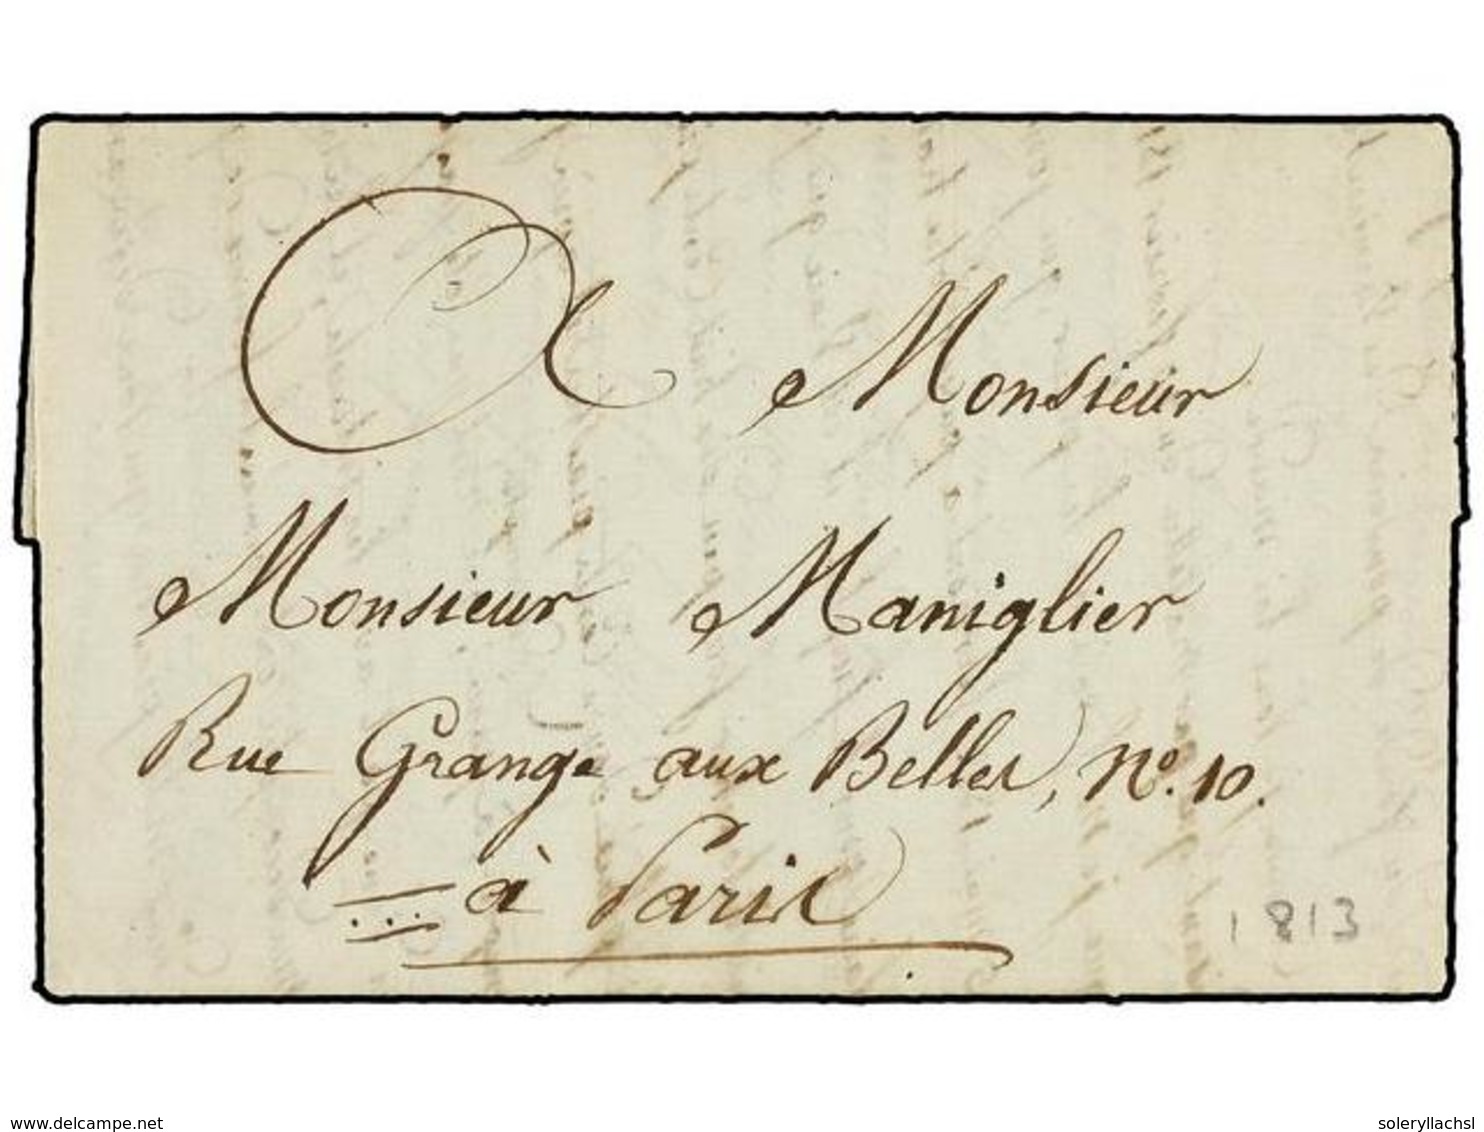 A Monsieur
Monsieur Maniglier
Rue Grange aux Belles, No. 10.
à Paris
1813
delcampe.net
soleryllachsl